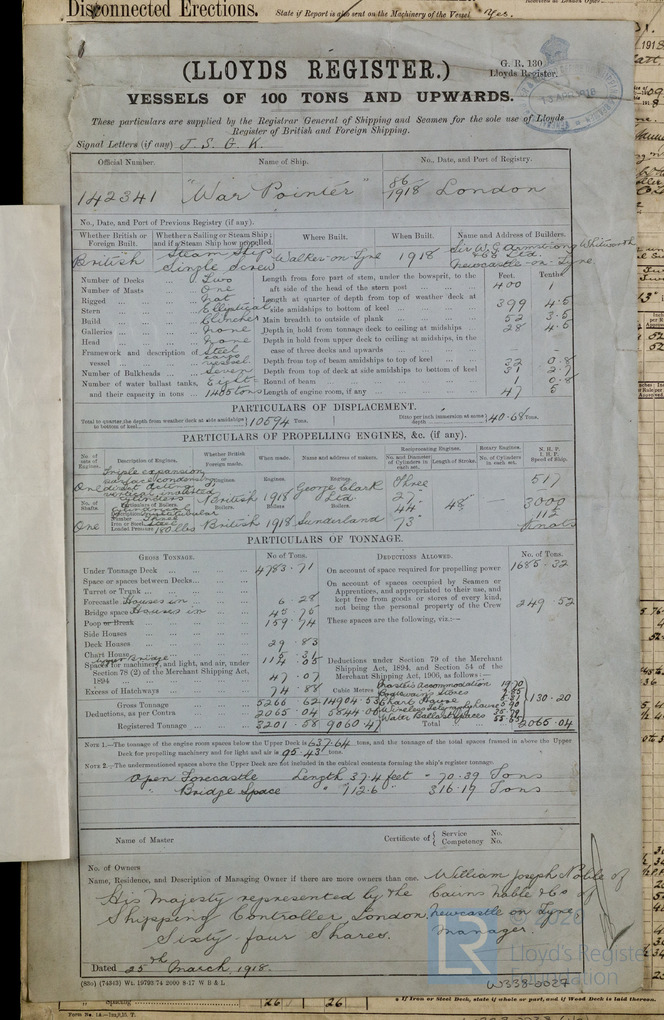 Disconnected Erections.
State if Report is also sent on the Machinery of the Vessel Yes.
(LLOYDS REGISTER.)
G. R. 130
Lloyds Register.
VESSELS OF 100 TONS AND UPWARDS.
These particulars are supplied by the Registrar General of Shipping and Seamen for the sole use of Lloyds
Register of British and Foreign Shipping.
Signal Letters (if any) J. S. G. K.
Official Number. Name of Ship. No., Date, and Port of Registry.
142341 "War Pointer" 86/1918 London
No., Date, and Port of Previous Registry (if any).
Whether British or Foreign Built. Whether a Sailing or Steam Ship; and if a Steam Ship how propelled. Where Built. When Built. Name and Address of Builders.
British Steam Ship Single Screw Walker-on-Tyne 1918 Sir W. G. Armstrong Whitworth & Co Ltd. Newcastle-on-Tyne
Number of Decks Two Length from fore part of stem, under the bowsprit, to the aft side of the head of the stern post Feet. 400 Tenths 1
Number of Masts One
Rigged Not Length at quarter of depth from top of weather deck at side amidships to bottom of keel 399 4.5
Stern Elliptical
Build Clincher Main breadth to outside of plank 52 3.5
Galleries None Depth in hold from tonnage deck to ceiling at midships 28 4.5
Head None Depth in hold from upper deck to ceiling at midships, in the case of three decks and upwards -
Framework and description of vessel Steel cargo vessel
Depth from top of beam amidships to top of keel 32 0.8
Number of Bulkheads Seven Depth from top of deck at side amidships to bottom of keel 31 2.7
Number of water ballast tanks, and their capacity in tons Eight 1405 tons Round of beam 1 0.8
Length of engine room, if any 47 5
PARTICULARS OF DISPLACEMENT.
Total to quarter the depth from weather deck at side amidships to bottom of keel 10594 Tons. Ditto per inch immersion at same depth 40.68 Tons.
PARTICULARS OF PROPELLING ENGINES, &c. (if any).
No. of sets of Engines. Description of Engines. Whether British or Foreign made. When made. Name and address of makers. Reciprocating Engines. Rotary Engines. N. H. P. I. H. P. Speed of Ship.
No. and Diameter of Cylinders in each set. Length of Stroke. No. of Cylinders in each set.
One Triple expansion surface condensing direct acting vertical inverted cylinders Engines. British 1918 Engines. George Clark Ltd. Three 27" 44" 73" 48" - 517
No. of Shafts. Particulars of Boilers. Boilers. Boilers. Boilers. 3000
Description Multitubular
Number Three
Iron or Steel Steel
Loaded Pressure 180 lbs
One British 1918 Sunderland 11½ Knots
PARTICULARS OF TONNAGE.
GROSS TONNAGE. No. of Tons. DEDUCTIONS ALLOWED. No. of Tons.
Under Tonnage Deck 4783.71 On account of space required for propelling power 1685.32
Space or spaces between Decks
Turret or Trunk
On account of spaces occupied by Seamen or Apprentices, and appropriated to their use, and kept free from goods or stores of every kind, not being the personal property of the Crew 249.52
Forecastle Houses in 6.28
Bridge space Houses in 45.75
Poop or Break 159.74 These spaces are the following, viz:-
Side Houses
Deck Houses 29.83
Chart House 5.31
Spaces for machinery, and light, and air, under Section 78 (2) of the Merchant Shipping Act, 1894 47.07
Deductions under Section 79 of the Merchant Shipping Act, 1894, and Section 54 of the Merchant Shipping Act, 1906, as follows:-
Excess of Hatchways 74.88 Cubic Metres
Gross Tonnage 5266.62 14904.53
Deductions, as per Contra 2065.04 5844.06
Registered Tonnage 3201.58 9060.47
Master's accommodation
Boatswain's Stores
Chart House
Wireless Telegraphy house
Water Ballast spaces
130.20
Total 2065.04
NOTE 1.-The tonnage of the engine room spaces below the Upper Deck is 637.64 tons, and the tonnage of the total spaces framed in above the Upper
Deck for propelling machinery and for light and air is 95.43 tons.
NOTE 2.-The undermentioned spaces above the Upper Deck are not included in the cubical contents forming the ship's register tonnage.
Open Forecastle Length 37.4 feet - 70.39 Tons
" Bridge Space " 112.6 " 316.19 Tons
Name of Master Certificate of { Service No. Competency No.
No. of Owners
Name, Residence, and Description of Managing Owner if there are more owners than one. William Joseph Noble of
His Majesty represented by the Cairns Noble & Co of
Shipping Controller, London, Newcastle on Tyne,
Sixty-four Shares. Manager.
Dated 25th March, 1918.
(83o) (74343) Wt. 19793/74 2000 8-17 W B & L
W338-0027
Lloyd's Register
Foundation
Spacing 26 26
If Iron or Steel Deck, state if whole or part, and if Wood Deck is laid thereon.